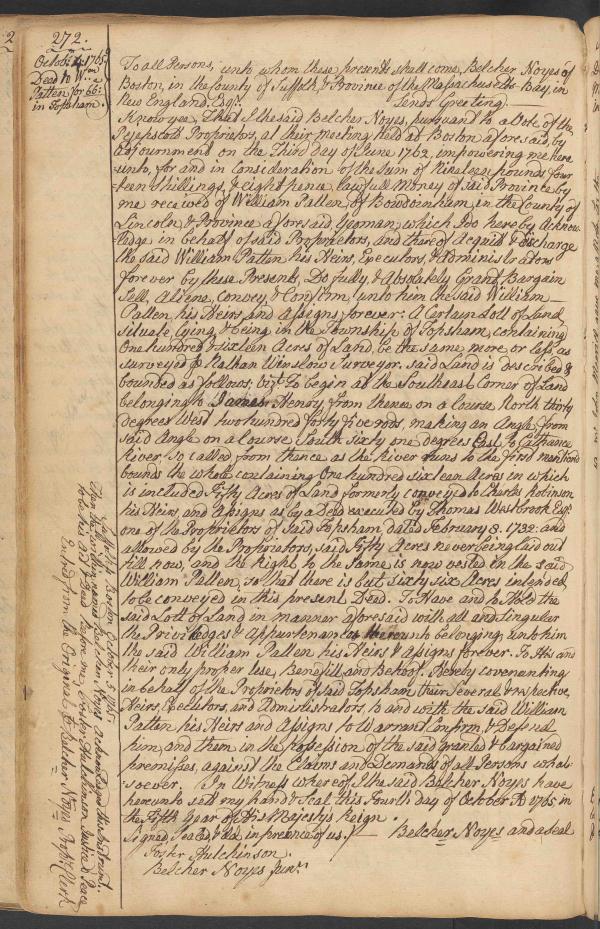 272.
Octob: 4. 1765
Deed to Wm
Patten for 66:a
in Topsham.
To all Persons, unto whom these presents shall come, Belcher Noyes of
Boston, in the County of Suffolk, & Province of the Massachusetts Bay, in
New England. Esqr. Sends Greeting
Know yee, That I the said Belcher Noyes, pursuant to a Vote of the
Pejepscot Proprietors, at their meeting held at Boston aforesaid, by
adjournment on the Third day of June 1762, impowering me here
unto, for and in Consideration of the Sum of Nineteen pounds four
teen Shillings, & eight pence, lawfull Money of said Province by
me received of William Patten, of Bowdoinham, in the County of
Lincoln, & Province aforesaid, Yeoman, which I do hereby Acknow
ledge in behalf of said Proprietors, and thereof Acquitt & discharge
the said William Patten his Heirs, Executors, & Administrators
forever by these Presents, Do fully, & Absolutely Grant, Bargain
Sell, Aliene, convey & Confirm, unto him the said William
Patten, his Heirs and Assigns forever: A Certain Lott of Land
situate, lying, & being in the Township of Topsham, containing
One hundred & sixteen Acres of Land, be the same more or less, as
surveyed p Nathan Winslow Surveyor. said Land is described &
bounded as follows; vizt. To begin at the Southeast Corner of Land
belonging to James Henry from thence on a Course, North thirty
degrees West two hundred forty five rods, making an Angle, from
said Angle on a Course South sixty one degrees East to Cathance
River so called from thence as the River runs to the first mentiond
bounds the whole containing One hundred sixteen Acres in which
is included Fifty Acres of Land formerly conveyed to Charles Robinson
his Heirs, and Assigns as by a Deed executed by Thomas Westbrook Esqr
one of the Proprietors of said Topsham dated February 8. 1732. and
allowed by the Proprietors, said Fifty Acres never being laid out
till now, and the Right to the same is now vested in the said
William Patten, so that there is but Sixty six Acres intended
to be conveyed in this present Deed. To Have and to Hold the
said Lott of Land in mannar aforesaid with all and singular
the Priviledges & Appurtenances thereunto belonging, unto him
the said William Patten his Heirs & Assigns forever. To His and
their only proper Use, Benefitt, and Behoof. Hereby covenanting
in behalf of the Proprietors of said Topsham, their several & respective
Heirs, Executors, and Administrators, to and with the said William
Patten his Heirs and Assigns to Warrant Confirm, & Defend
him, and them in the possession of the said granted & bargained
premisses, against the Claims and Demands of all Persons what-
soever. In Witness whereof I the said Belcher Noyes have
hereunto sett my hand & Seal this Fourth day of October AD 1765 in
the Fifth Year of His Majestys Reign.
Signed, sealed & Ded. in presence of us. Belcher Noyes and a seal
Foster Hutchinson.
Belcher Noyes Junr.
Suffolk ss. Boston October 4. 1765.
Then the within named Belcher Noyes acknowledged this Instrument
to be his Act & Deed before me, Foster Hutchinson Justice Peace
Entred from the Original p Belcher Noyes Propr. Clerk